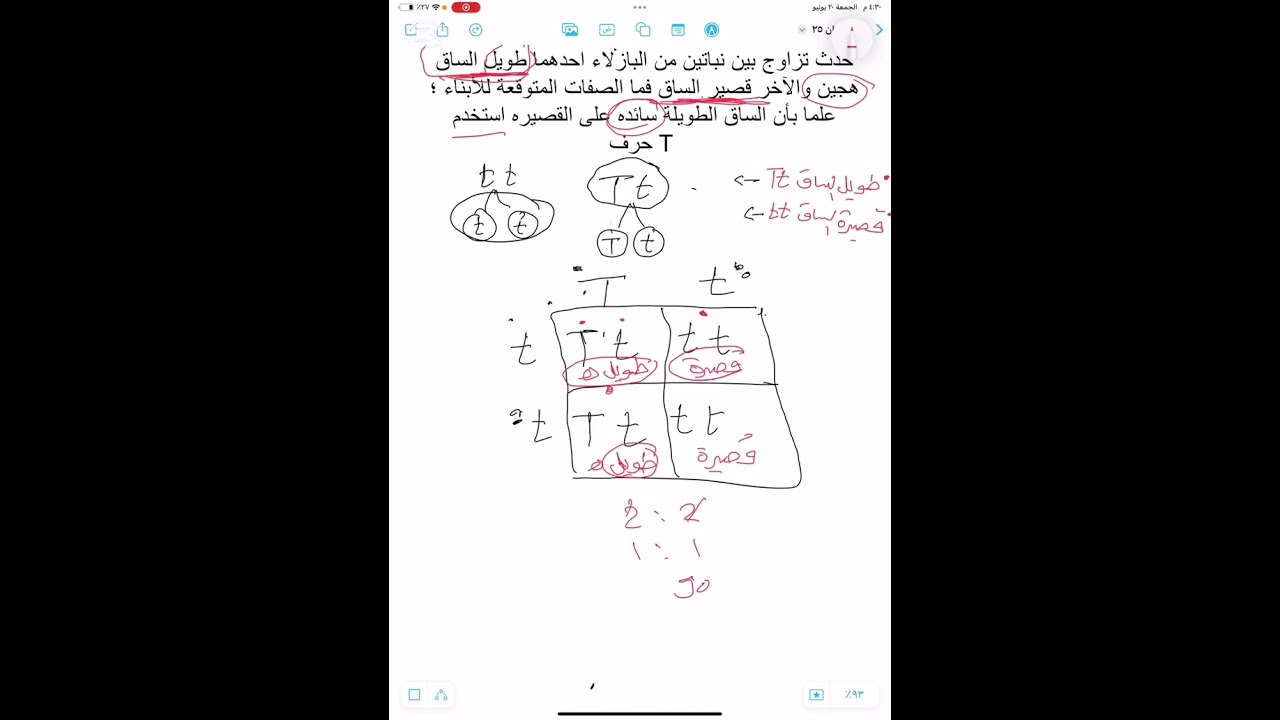 ٤:٣٠ م الجمعة ٢٠ يونيو
٪٢٧
ان ٢٥
حدث تزاوج بين نباتين من البازلاء احدهما طويل الساق
هجين والآخر قصير الساق فما الصفات المتوقعة للأبناء ؛
علما بأن الساق الطويلة سائده على القصيره استخدم
حرف T
t t
T t
طويل الساق Tt <-
قصيرة الساق tt <-
t t
T t
T t
t T t t t
طويل ه قصيرة
t T t t t
طويل ه قصيرة
2 : 2
١ : ١
٪٩٣